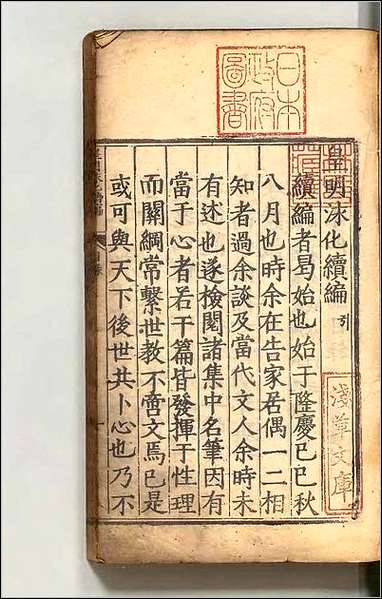 日本
政府
圖書
皇明沫化續編引
續編者曷始也始于隆慶己巳秋
八月也時余在告家居偶一二相
知者過余談及當代文人余時未
有述也遂檢閱諸集中名筆因有
當于心者若干篇皆發揮于性理
而關綱常繫世教不啻文焉已是
或可與天下後世共卜心也乃不
淺草文庫